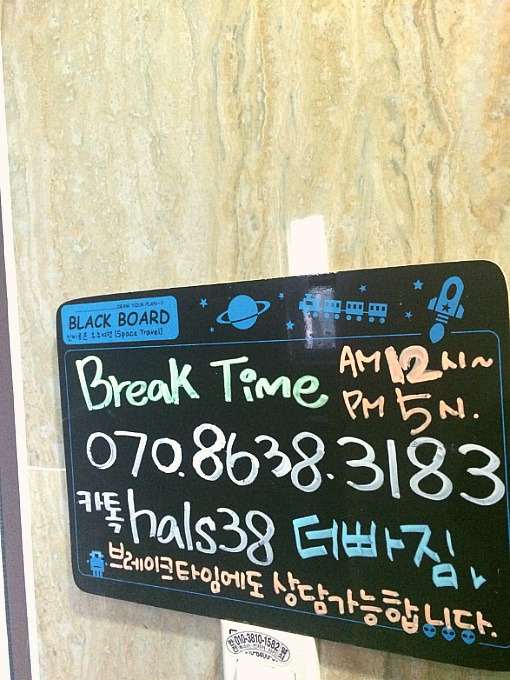 DRAW YOUR PLAN~!
BLACK BOARD
신비로운 우주여행 [Space Travel]
Break Time AM 12시~
PM 5시.
070.8638.3183
카톡 hals38 더빠짐
브레이크타임에도 상담가능합니다.
010-3810-1582